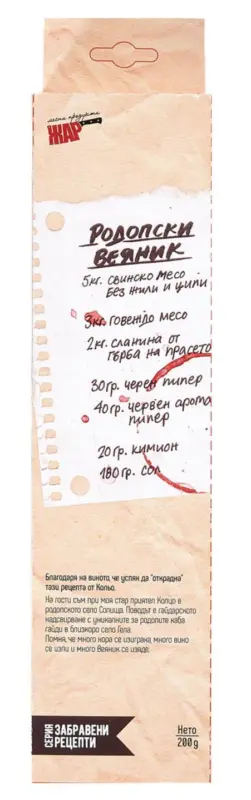 месни продукти
ЖАР
РОДОПСКИ
ВЕЯНИК
5кг. свинско месо
без жили и ципи
3кг. говеждо месо
2кг. сланина от
гърба на прасето
30гр. черен пипер
40гр. червен арома
пипер
20гр. кимион
180гр. сол
Благодаря на виното, че успях да "открадна"
тази рецепта от Кольо.
На гости съм при моя стар приятел Кольо в
родопското село Солища. Поводът е гайдарското
надсвирване с уникалните за родопите каба
гайди в близкото село Гела.
Помня, че много хора се изиграха, много вино
се изпи и много Веяник се изяде.
СЕРИЯ
ЗАБРАВЕНИ
РЕЦЕПТИ
Нето
200 g